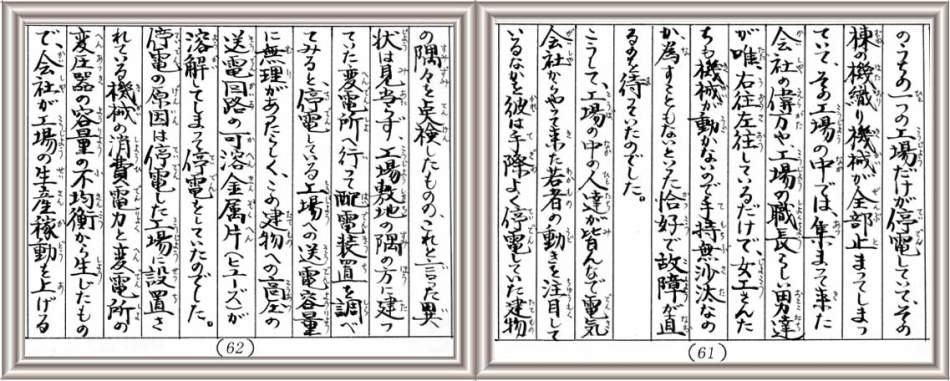 のうちの一つの工場だけが停電していて、その
棟の機織り機械が全部止まってしまっ
ていて、その工場の中では、集まって来た
会社の偉方や、工場の職長らしい男達
が唯、右往左往しているだけで、女工さんた
ちも機械が動かないので手持無沙汰なの
か為すこともないといった恰好で故障が直
るのを待っていたのでした。
こうして、工場の中の人達が皆んなで電気
会社からやって来た若者の動きを注目して
いるなかを彼は手際よく停電していた建物
(61)
の隅々を点検したものの、これと云った異
状は見当らず、工場敷地の隅の方に建っ
ていた変電所へ行って配電装置を調べ
てみると、停電している工場への送電容量
に無理があったらしく、この建物への高圧の
送電回路の可溶金属片(ヒューズ)が
溶解してしまって停電をしていたのでした。
停電の原因は停電した工場に設置さ
れている機械の消費電力と変電所の
変圧器の容量の不均衡から生じたもの
で、会社が工場の生産稼動を上げる
(62)